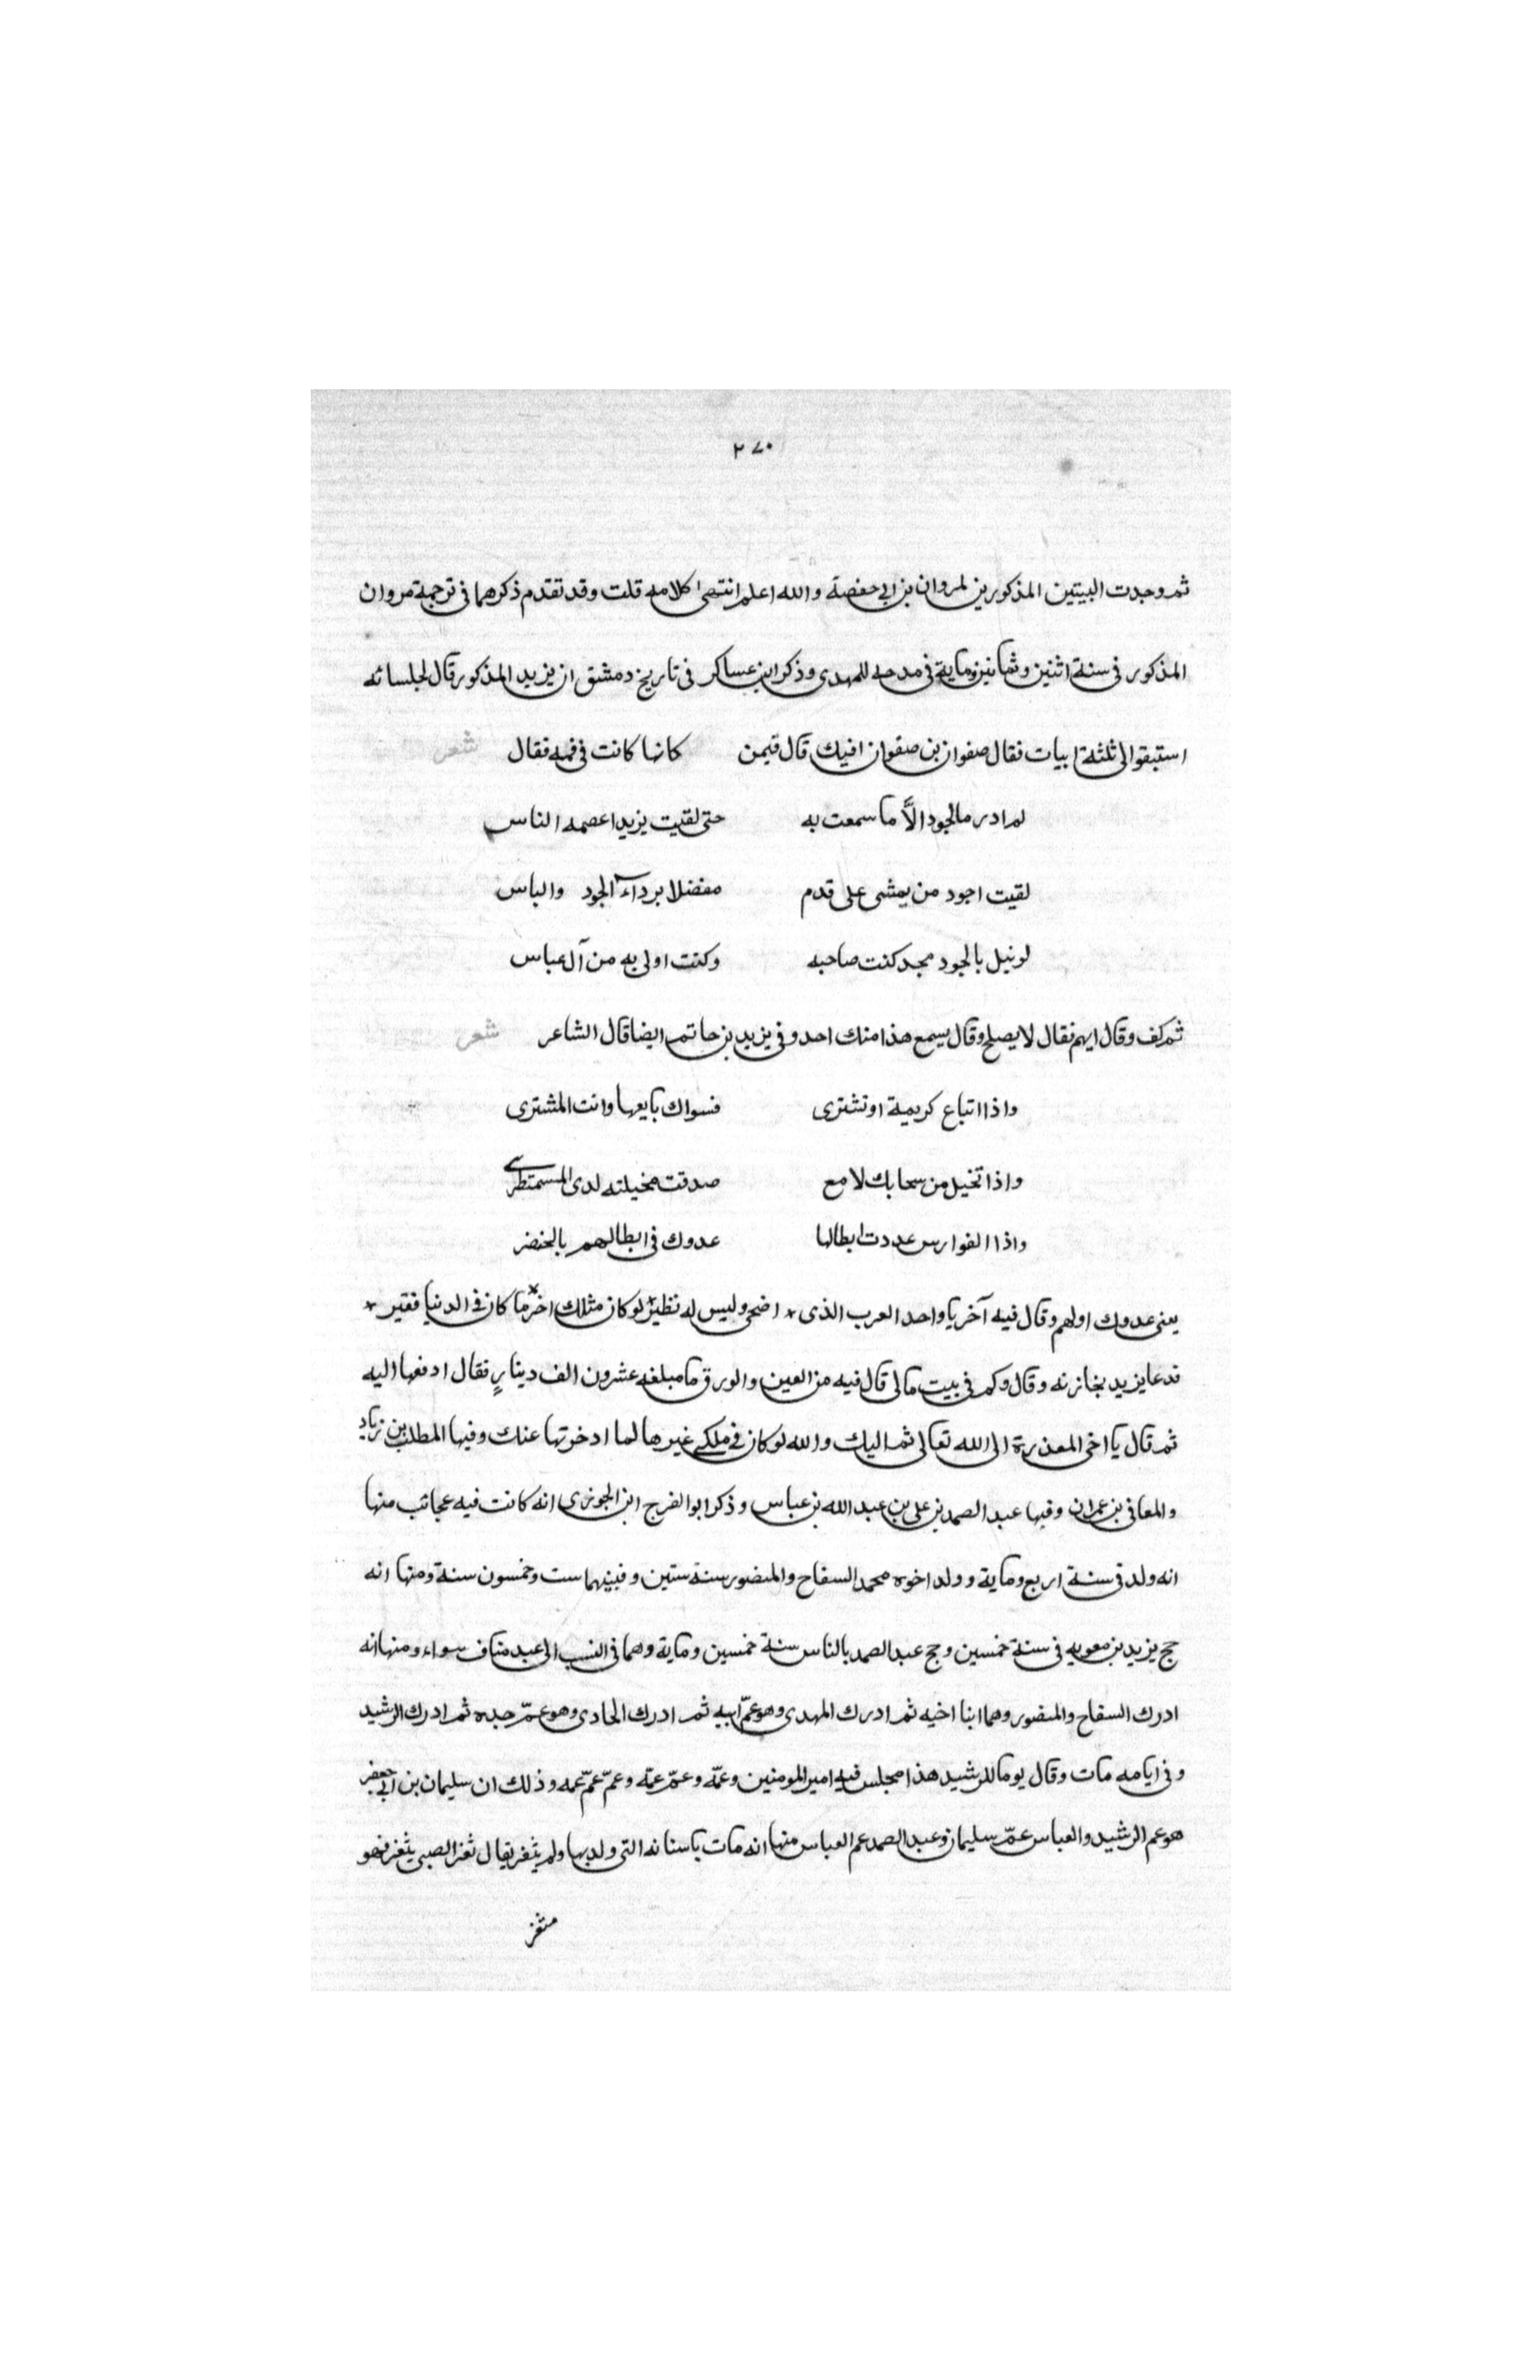 ٢٧٠
ثم وجدت البيتين المذكورين لمروان بن ابي حفصة والله اعلم انتهى كلامه قلت وقد تقدم ذكرهما في ترجمة مروان
المذكور في سنة اثنين وثمانين ومايه في مدحه للمهدى وذكر ابن عساكر في تاريخ دمشق ان يزيد المذكور قال لجلسائه
استبقوا الى ثلثة ابيات فقال صفوان بن صفوان افيك قال فيمن كانها كانت في فمه فقال شعر
لم ادر ما لجود الاَّ ما سمعت به حتى لقيت يزيدا عصمه الناس
لقيت اجود من يمشى على قدم مفضلا برداء الجود والباس
لو نيل بالجود مجد كنت صاحبه وكنت اولى به من آل عباس
ثم كف وقال ايهم فقال لا يصلح وقال يسمع هذا منك احد وفي يزيد بن حاتم ايضا قال الشاعر شعر
واذا اتباع كريمة او تشترى فسواك بايعها وانت المشترى
واذا تخيل من سحابك لامع صدقت مخيلته لدى المستمطرى
واذا الفوارس عددت ابطالها عدوك في ابطالهم بالخنضر
يعنى عدوك اولهم وقال فيه آخر يا واحد العرب الذى * اضحى وليس له نظير * لو كان مثلك اخر * ما كان في الدنيا فقير *
فدعا يزيد بخازنه وقال وكم في بيت مالى قال فيه من العين والورق ما مبلغه عشرون الف دينارٍ فقال ادفعها اليه
ثم قال يا اخى المعذرة الى الله تعالى ثم اليك والله لو كان في ملكى غيرها لما ادخرتها عنك وفيها المطلب بن زياد
والمعافى بن عمران وفيها عبد الصمد بن على بن عبد الله بن عباس وذكر ابو الفرج ابن الجوزى انه كانت فيه عجائب منها
انه ولد في سنة اربع ومايه وولد اخوه محمد السفاح والمنصور سنة ستين وفبينهما ست وخمسون سنة ومنها انه
حج يزيد بن معويه في سنة خمسين وحج عبد الصمد بالناس سنة خمسين ومايه وهما في النسب الى عبد مناف سواء ومنها انه
ادرك السفاح والمنصور وهما ابنا اخيه ثم ادرك المهدى وهو عمّ ابيه ثم ادرك الهادى وهو عمّ جده ثم ادرك الرشيد
وفي ايامه مات وقال يوما للرشيد هذا مجلس فيه امير المومنين وعمّه وعمّ عمّه وعمّ عمّ عمه وذلك ان سليمان بن ابي جعفر
هو عم الرشيد والعباس عمّ سليمان وعبد الصمد عم العباس منها انه مات باسنانه التى ولد بها ولم يثغر يقال ثغر الصبى يثغر فهو
مثغر